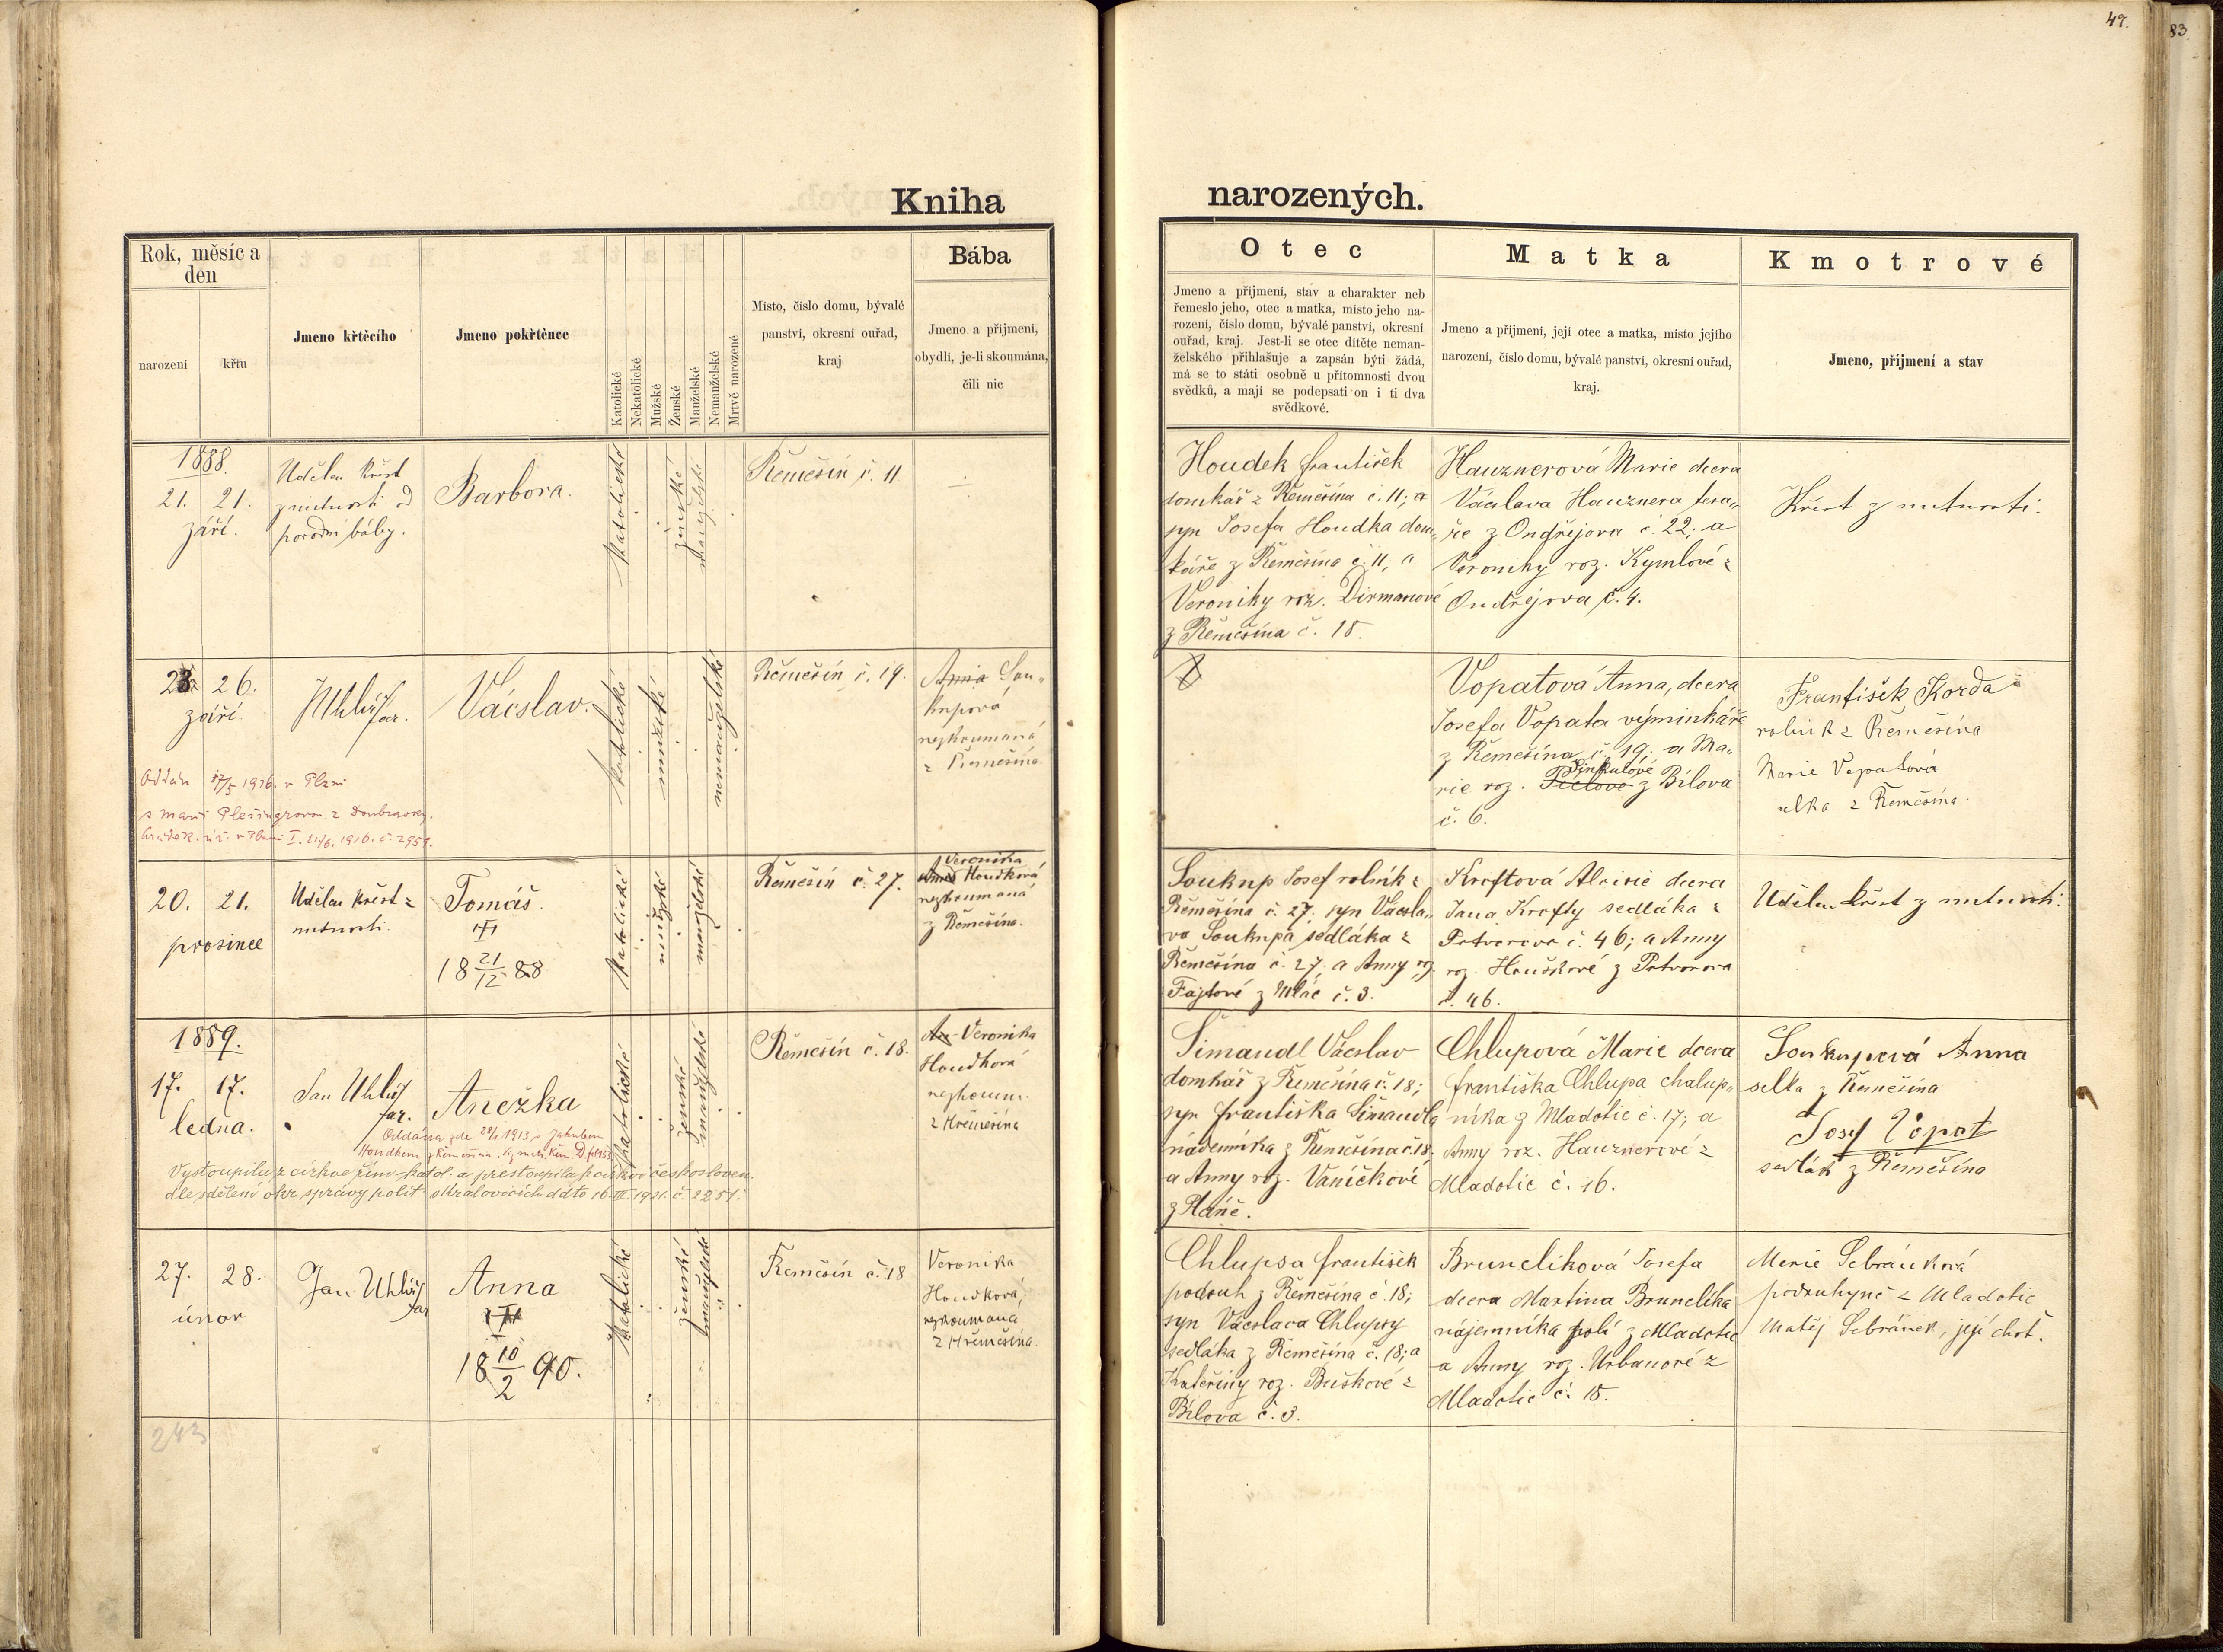 49.
83
Kniha narozených.
Rok, měsíc a den
narození
křtu
Jmeno křtěcího
Jmeno pokřtěnce
Katolické
Nekatolické
Mužské
Ženské
Manželské
Nemanželské
Mrtvě narozené
Místo, číslo domu, bývalé
panství, okresní ouřad,
kraj
Bába
Jmeno a příjmení,
obydlí, je-li skoumána,
čili nic
Otec
Jmeno a příjmení, stav a charakter neb
řemeslo jeho, otec a matka, místo jeho na-
rození, číslo domu, bývalé panství, okresní
ouřad, kraj. Jest-li se otec dítěte neman-
želského přihlašuje a zapsán býti žádá,
má se to státi osobně u přítomnosti dvou
svědků, a mají se podepsati on i ti dva
svědkové.
Matka
Jmeno a příjmení, její otec a matka, místo jejího
narození, číslo domu, bývalé panství, okresní ouřad,
kraj.
Kmotrové
Jmeno, příjmení a stav
1888.
21. 21.
září.
Udělen křest
z nutnosti od
porodní báby.
Barbora.
katolické
ženské
manželské
Řemešín č. 11
Houdek František
domkář z Řemešína č. 11; a
syn Josefa Houdka dom„
káře z Řemešína č. 11, a
Veroniky roz. Dirmanové
z Řemešína č. 18.
Hauznerová Marie dcera
Václava Hauznera tesa„
ře z Ondřejova č. 22, a
Veroniky roz. Kymlové z
Ondřejova č. 4.
Křest z nutnosti.
23 26.
září.
Uhlíř far.
Václav.
katolické
mužské
nemanželské
Řemešín č. 19.
Anna Sou„
kupová
nezkoumaná
z Řemešína
Vopatová Anna, dcera
Josefa Vopata výminkáře
z Řemešína č. 19. a Ma„
rie roz. Šinkulové z Bílova
č. 6.
František Korda
rolník z Řemešína
Marie Vopatová
selka z Řemešína.
Oddán 17/5 1916. v Plzni
s Marií Plešingrovou z Doubravky.
20. 21.
prosince
Udělen křest z
nutnosti.
Tomáš.
18 21/12 88
katolické
mužské
manželské
Řemešín č. 27.
Veronika
Anna Houdková
nezkoumaná
z Řemešína.
Soukup Josef rolník z
Řemešína č. 27. syn Václa„
va Soukupa sedláka z
Řemešína č. 27. a Anny roz.
Fajtové z Mláč č. 3.
Kroftová Aloisie dcera
Jana Krofty sedláka z
Potvorova č. 46; a Anny
roz. Houškové z Potvorova
č. 46.
Udělen křest z nutnosti.
1889.
17. 17.
ledna.
Jan Uhlíř
far.
Anežka
katolické
ženské
manželské
Řemešín č. 18.
An Veronika
Houdková
nezkoum.
z Hřemešína
Šimandl Václav
domkář z Řemešína č. 18;
syn Františka Šimandla
nádenníka z Řemešína č. 18.
a Anny roz. Vaníčkové
z Pláně.
Chlupová Marie dcera
Františka Chlupa chalup„
níka z Mladotic č. 17; a
Anny roz. Hauznerové z
Mladotic č. 16.
Soukupová Anna
selka z Řemešína
Josef Vopat
sedlák z Řemešína
Oddána zde 28/1. 1913, s Jakubem
Houdkem z Řemešína
Vystoupila z církve řím-katol. a přestoupila k církvi českosloven.
dle sdělení okr. správy polit. v Kralovicích ddto 16. III. 1921. č. 2251.
27. 28.
únor
Jan Uhlíř
far
Anna
18 10/2 90.
katolické
ženské
manželské
Řemešín č. 18
Veronika
Houdková,
nezkoumaná
z Hřemešína.
Chlupsa František
podruh z Řemešína č. 18;
syn Václava Chlupsy
sedláka z Řemešína č. 18; a
Kateřiny roz. Buškové z
Bílova č. 3.
Brunclíková Josefa
dcera Martina Brunclíka
nájemníka polí z Mladotic
a Anny roz. Urbanové z
Mladotic č. 15.
Marie Sebránková
podruhyně z Mladotic
Matěj Sebránek, její choť.
243